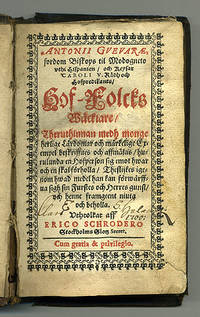 ANTONII GVEVARÆ,
fordom Biskops til Modogneto
vthi Hispanien / och Keysar
CAROLI V. Rådh och
Hofpredikants /
Hof-Folcks
Wäckiare /
Ther uthinnan medh monge
herlige Lärdomar och märckelige Ex-
empel beskrifwes och
huru-
lunda en Hofperson sig emot hwar
och en skal förhålla /
nom hwad medel han kan förwärff-
wa sigh sin Furstes och Herres gunst /
och henne framgent niuta
och beholla.
Vthtolkat aff
ERICO SCHRODERO
Stockholms Slotz Secret.
Cum gratia & privilegio.